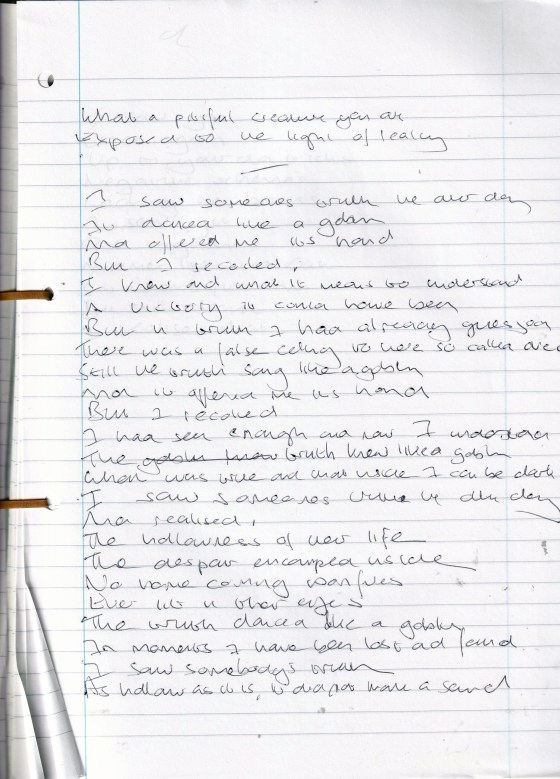 What a pitiful creature you are
Exposed to the light of reality
I saw someones truth the other day
It danced like a goblin
And offered me its hand
But I recoiled.
I knew not what it means to understand
A victory it could have been
But in truth I had already guessed
There was a false ceiling to here so called
Still the truth sang like a goblin
And it offered me its hand
But I recoiled
I had seen enough and now I understand
The goblin truth knew like a goblin
What was true and that inside I can be dark
I saw someones truth the other day
And realised,
The hollowness of their life
The despair encamped inside
No home coming
Ever lit in their eyes
The truth danced like a goblin
In moments I have been lost and found
I saw somebody's truth
As hollow as it is, it did not make a sound